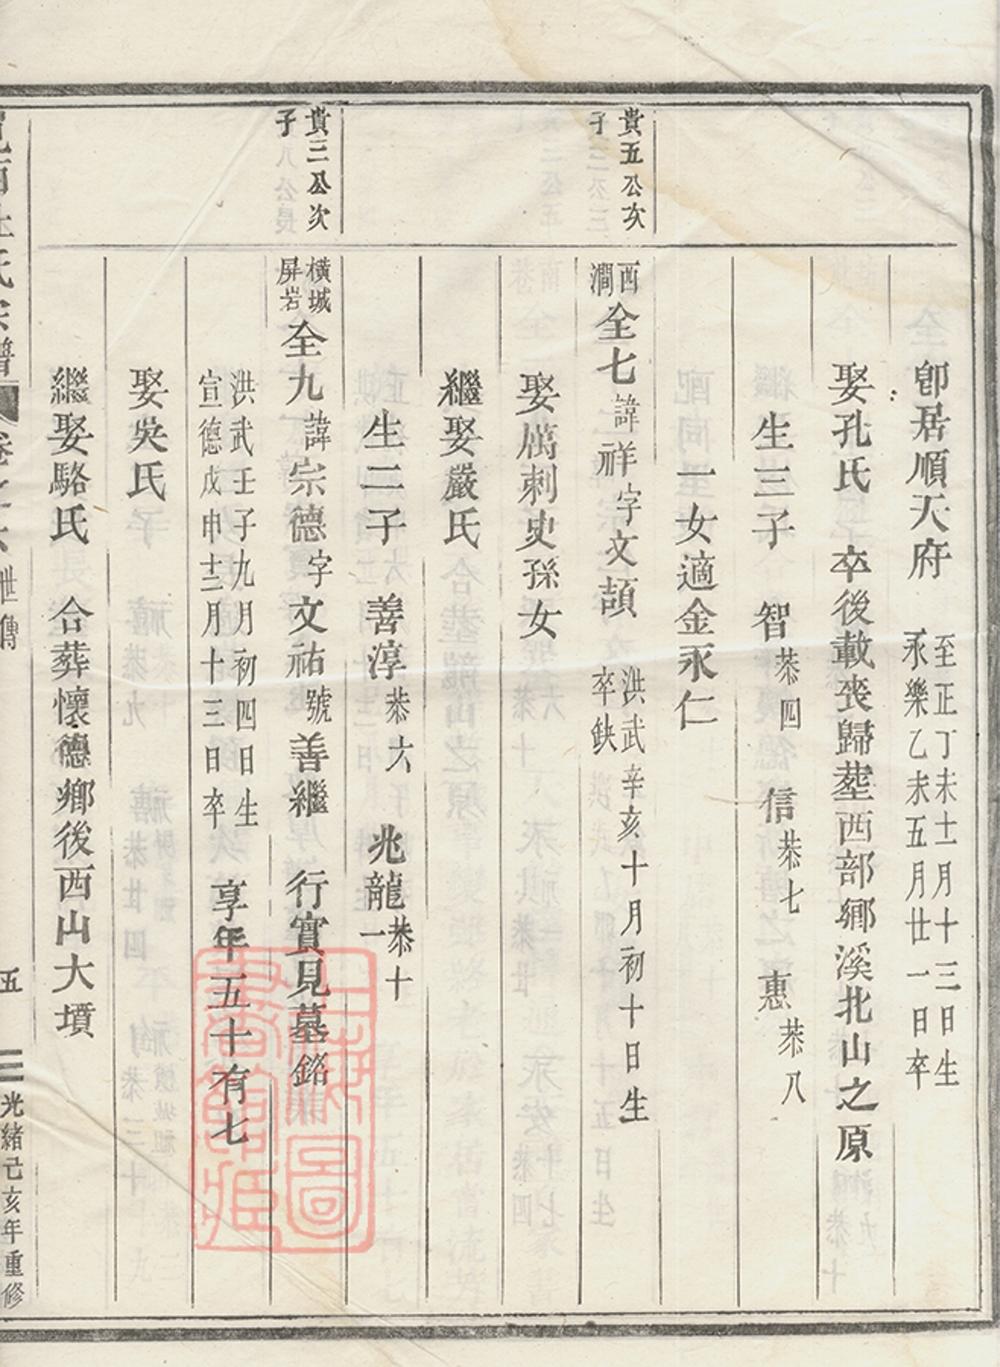 卽居順天府 至正丁未十二月十三日生
永樂乙未五月廿一日卒
娶孔氏 卒後載喪歸塟西部鄉溪北山之原
生三子 智恭四 信恭七 惠恭八
一女適金永仁
貴五公次
子
西
澗
全七諱祥字文頡 洪武辛亥十月初十日生
卒鈌
娶厲刺史孫女
繼娶嚴氏
生二子 善淳恭六 兆龍恭十
一
貴三公次
子
橫城
屏岩
全九諱宗德字文祐號善繼 行實見墓銘
洪武壬子九月初四日生
宣德戊申十二月十三日卒
享年五十有七
娶吳氏
繼娶駱氏 合葬懷德鄉後西山大墳
杜氏宗譜 卷之六 世傳 五 光緒己亥年重修
上海圖
書館藏